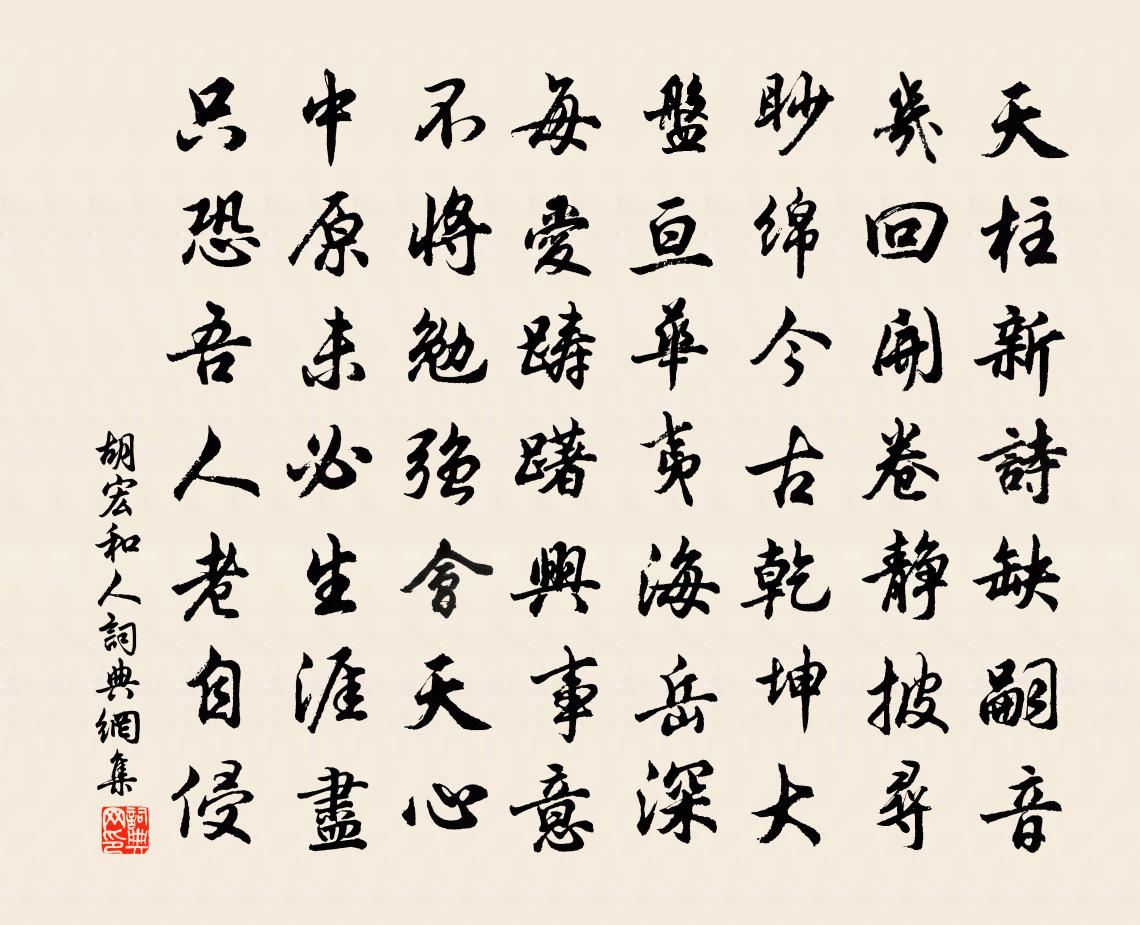 天柱新詩缺嗣音
幾回開卷靜披尋
眇绵今古乾坤大
盤亘華夷海岳深
每愛躊躇興事意
不將勉強會天心
中原未必生涯盡
只恐吾人老自侵
胡宏和人詞典網集
詞典网印